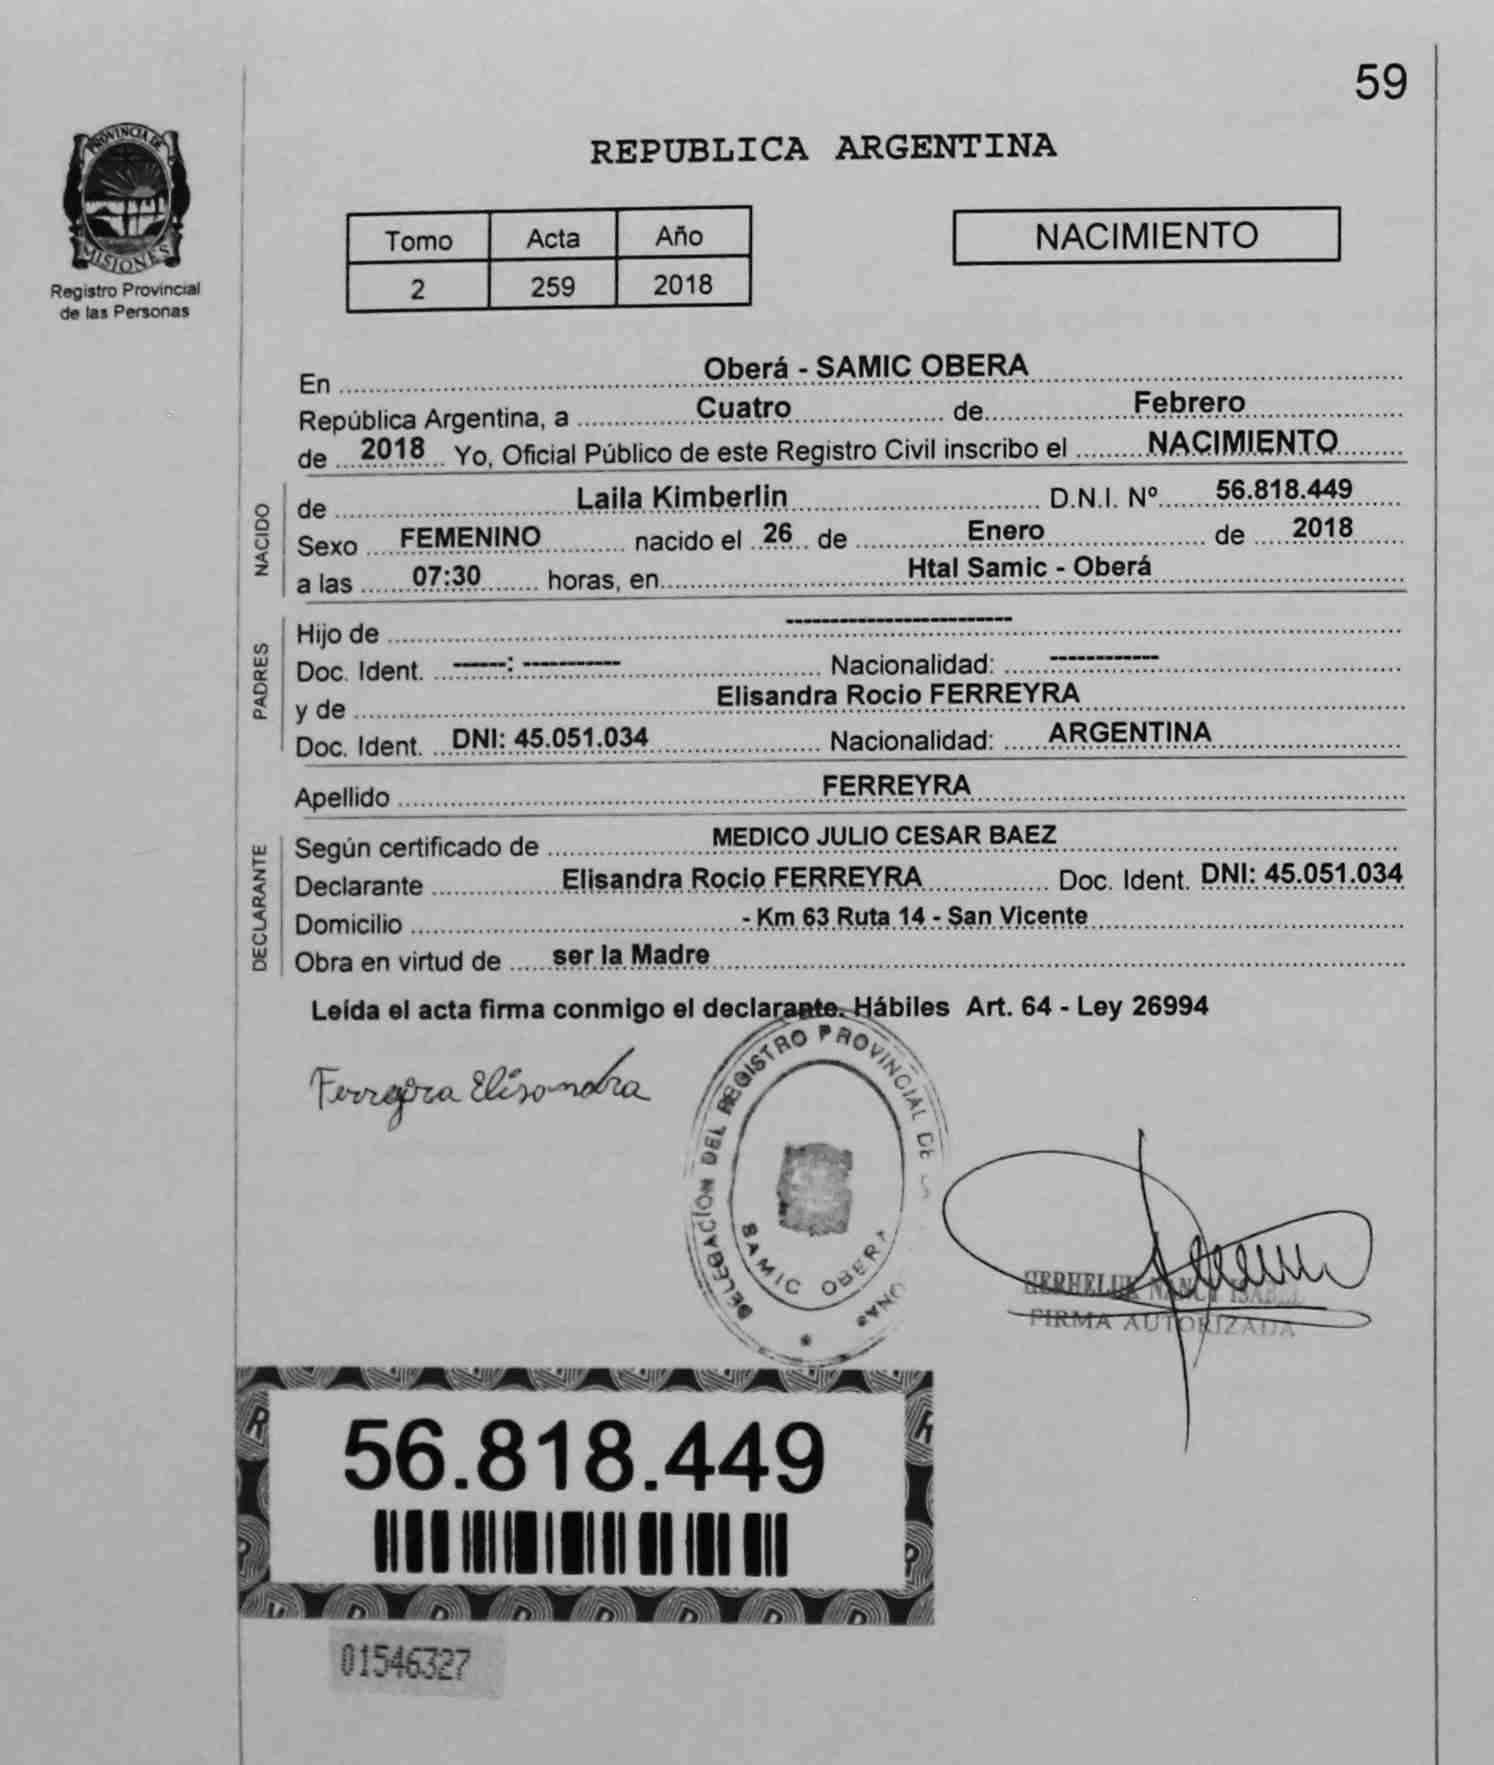 59
PROVINCIA DE
MISIONES
Registro Provincial
de las Personas
REPUBLICA ARGENTINA
Tomo Acta Año
2 259 2018
NACIMIENTO
En Oberá - SAMIC OBERA
República Argentina, a Cuatro de Febrero
de 2018 Yo, Oficial Público de este Registro Civil inscribo el NACIMIENTO
NACIDO
de Laila Kimberlin D.N.I. Nº 56.818.449
Sexo FEMENINO nacido el 26 de Enero de 2018
a las 07:30 horas, en Htal Samic - Oberá
PADRES
Hijo de -------------------------
Doc. Ident. ------: ----------- Nacionalidad: ------------
y de Elisandra Rocio FERREYRA
Doc. Ident. DNI: 45.051.034 Nacionalidad: ARGENTINA
Apellido FERREYRA
DECLARANTE
Según certificado de MEDICO JULIO CESAR BAEZ
Declarante Elisandra Rocio FERREYRA Doc. Ident. DNI: 45.051.034
Domicilio - Km 63 Ruta 14 - San Vicente
Obra en virtud de ser la Madre
Leída el acta firma conmigo el declarante. Hábiles Art. 64 - Ley 26994
Ferreyra Elisandra
DELEGACION DEL REGISTRO PROVINCIAL DE
SAMIC OBERA
NANCY ISABEL
FIRMA AUTORIZADA
56.818.449
01546327